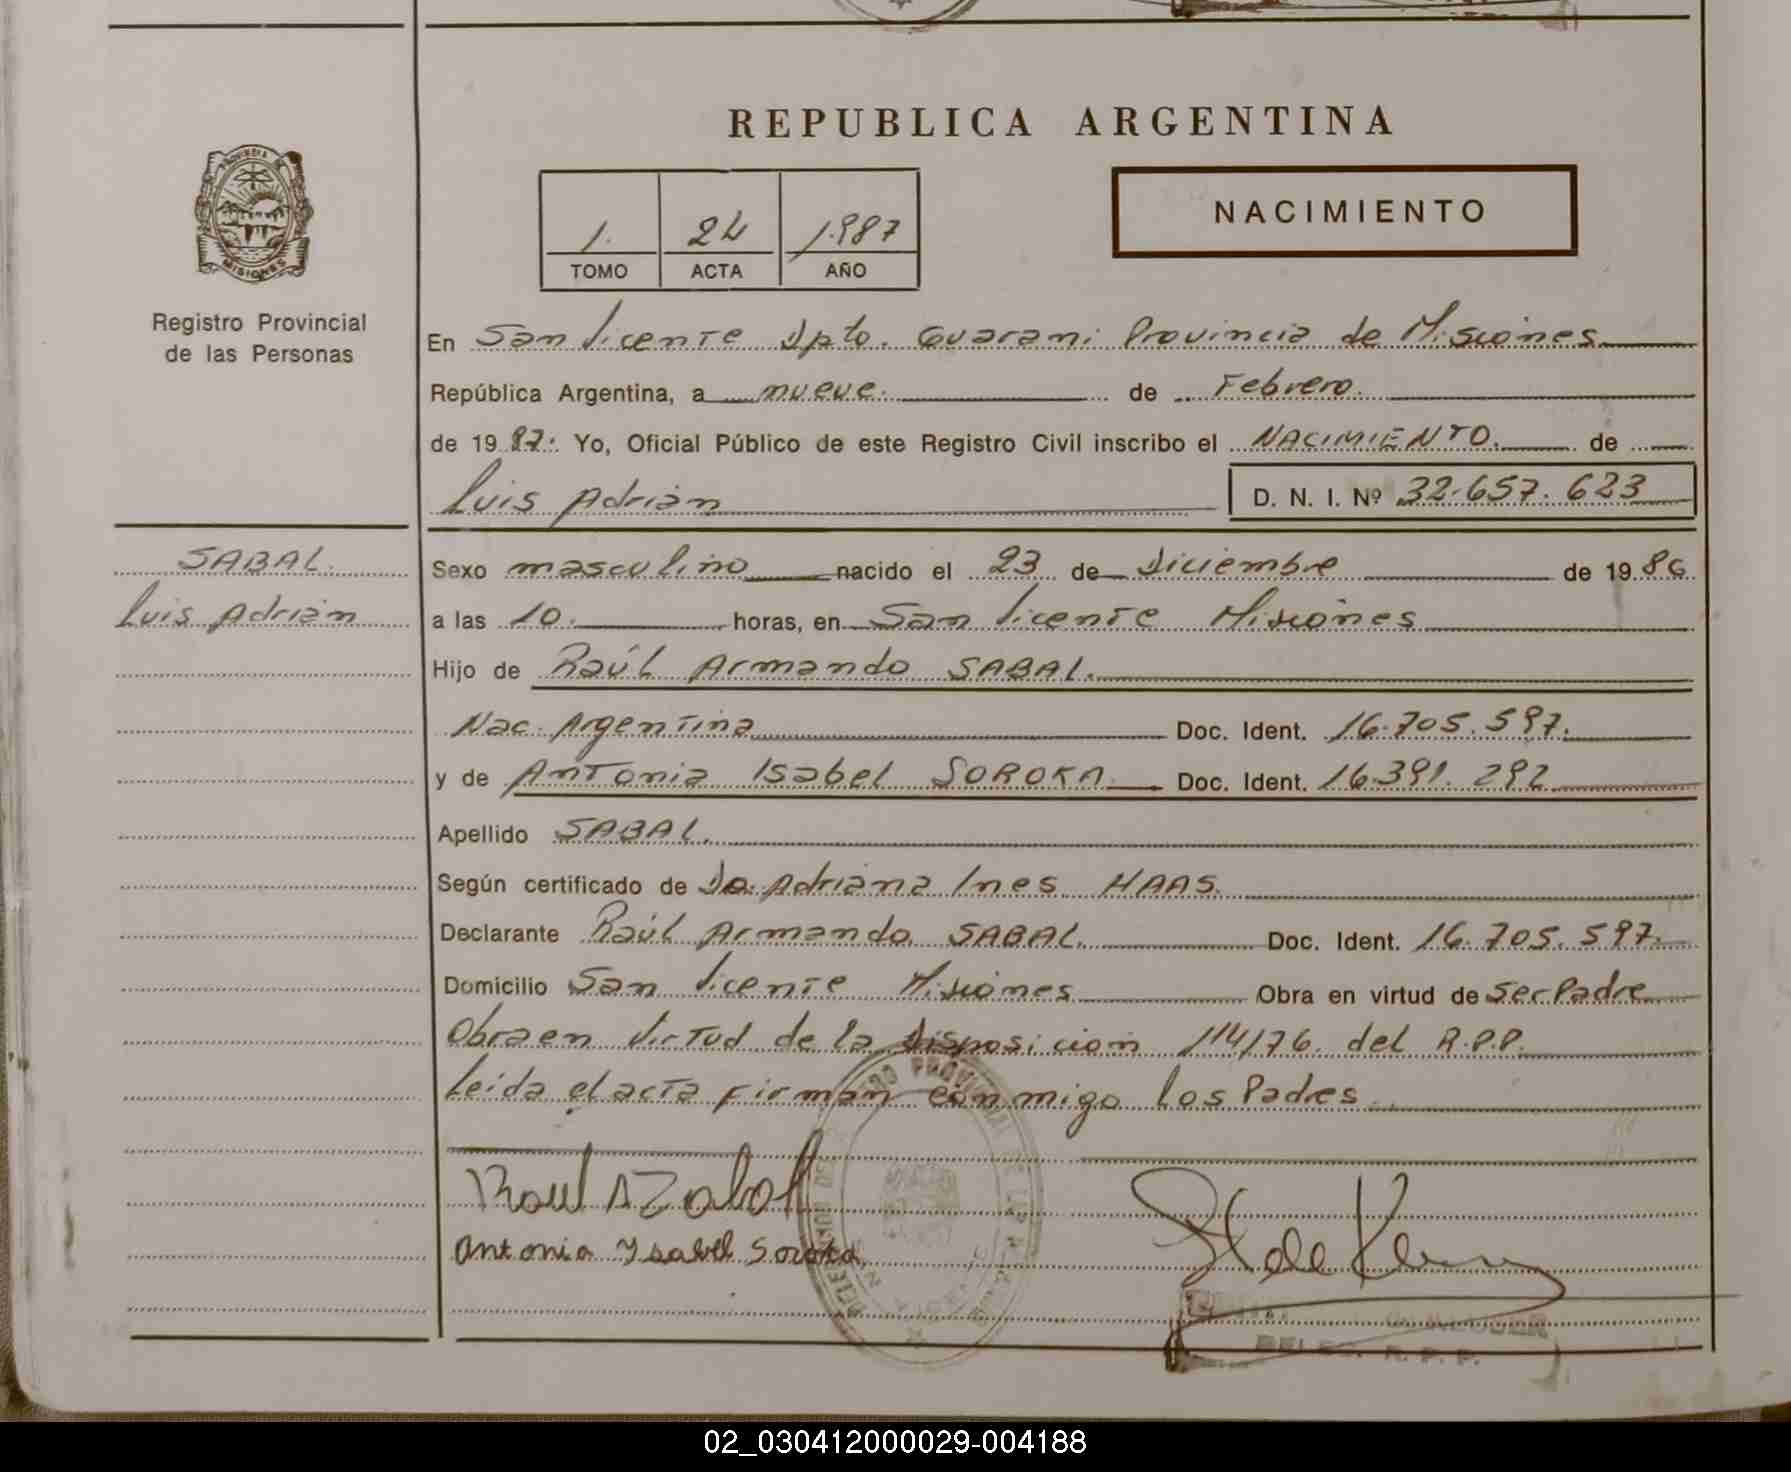 REPUBLICA ARGENTINA
PROVINCIA DE
MISIONES
Registro Provincial
de las Personas
1. 24 1.987
TOMO ACTA AÑO
NACIMIENTO
En San Vicente Dpto. Guarani Provincia de Misiones
República Argentina, a nueve. de Febrero.
de 19 87. Yo, Oficial Público de este Registro Civil inscribo el NACIMIENTO. de
Luis Adrián D. N. I. Nº 32.657.623
SABAL.
Luis Adrián
Sexo masculino nacido el 23 de Diciembre de 19 86
a las 10. horas, en San Vicente Misiones
Hijo de Raúl Armando SABAL.
Nac. Argentina Doc. Ident. 16.705.597.
y de Antonia Isabel SOROKA. Doc. Ident. 16.391.292
Apellido SABAL.
Según certificado de Da. Adriana Ines HAAS.
Declarante Raúl Armando SABAL. Doc. Ident. 16.705.597.
Domicilio San Vicente Misiones Obra en virtud de ser Padre
Obra en Virtud de la Disposición 114/76. del R.P.P.
Leída el acta firman conmigo los Padres.
Raul A Zabal
Antonia Ysabel Soroka
R. P. P.
02_030412000029-004188